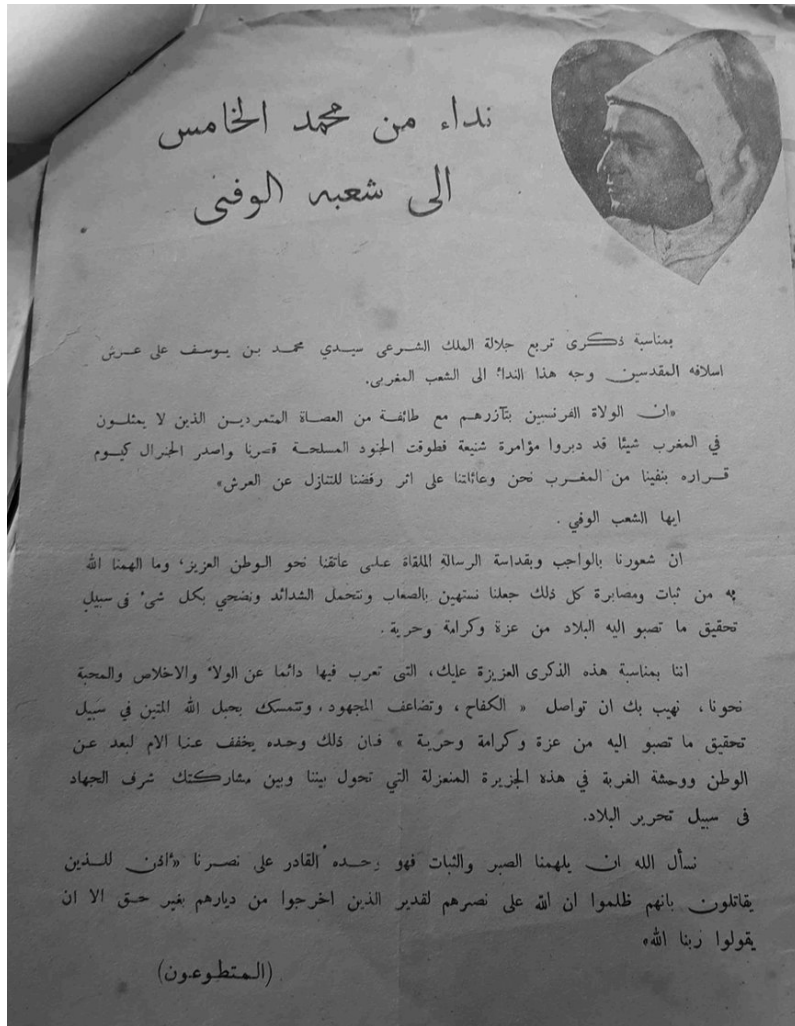 نداء من محمد الخامس
الى شعبه الوفى
بمناسبة ذكرى تربع جلالة الملك الشرعى سيدي محمد بن يوسف على عرش
اسلافه المقدسين وجه هذا النداء الى الشعب المغربى.
«ان الولاة الفرنسين بتآزرهم مع طائفة من العصاة المتمردين الذين لا يمثلون
في المغرب شيئا قد دبروا مؤامرة شنيعة فطوقت الجنود المسلحة قصرنا واصدر الجنرال كيوم
قراره بنفينا من المغرب نحن وعائلتنا على اثر رفضنا للتنازل عن العرش»
ايها الشعب الوفي .
ان شعورنا بالواجب وبقداسة الرسالة الملقاة على عاتقنا نحو الوطن العزيز، وما الهمنا الله
به من ثبات ومصابرة كل ذلك جعلنا نستهين بالصعاب ونتحمل الشدائد ونضحي بكل شىء فى سبيل
تحقيق ما تصبو اليه البلاد من عزة وكرامة وحرية .
اننا بمناسبة هذه الذكرى العزيزة عليك، التى تعرب فيها دائما عن الولاء والاخلاص والمحبة
نحونا، نهيب بك ان تواصل « الكفاح، وتضاعف المجهود، وتتمسك بحبل الله المتين في سبيل
تحقيق ما تصبو اليه من عزة وكرامة وحرية » فان ذلك وحده يخفف عنا الام لبعد عن
الوطن ووحشة الغربة في هذه الجزيرة المنعزلة التي تحول بيننا وبين مشاركتك شرف الجهاد
فى سبيل تحرير البلاد.
نسأل الله ان يلهمنا الصبر والثبات فهو وحده القادر على نصرنا «أذن للذين
يقاتلون بانهم ظلموا ان الله على نصرهم لقدير الذين اخرجوا من ديارهم بغير حق الا ان
يقولوا ربنا الله»
(المتطوعون)